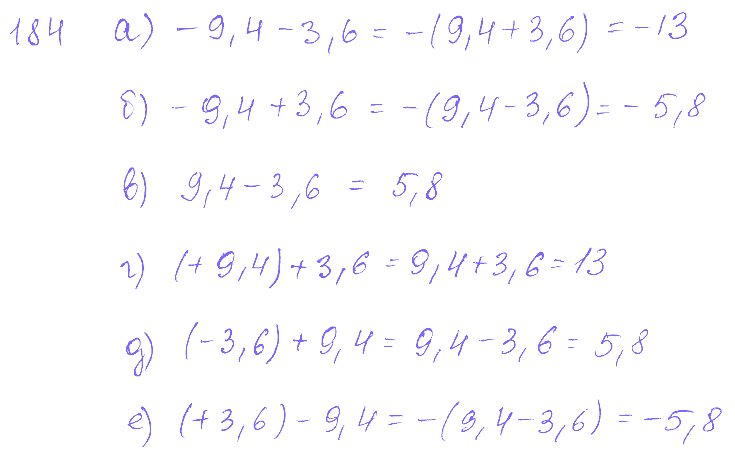 184 а) -9,4-3,6 = -(9,4+3,6) = -13
б) -9,4+3,6 = -(9,4-3,6) = -5,8
в) 9,4-3,6 = 5,8
г) (+9,4)+3,6 = 9,4+3,6 = 13
д) (-3,6)+9,4 = 9,4-3,6 = 5,8
е) (+3,6)-9,4 = -(9,4-3,6) = -5,8